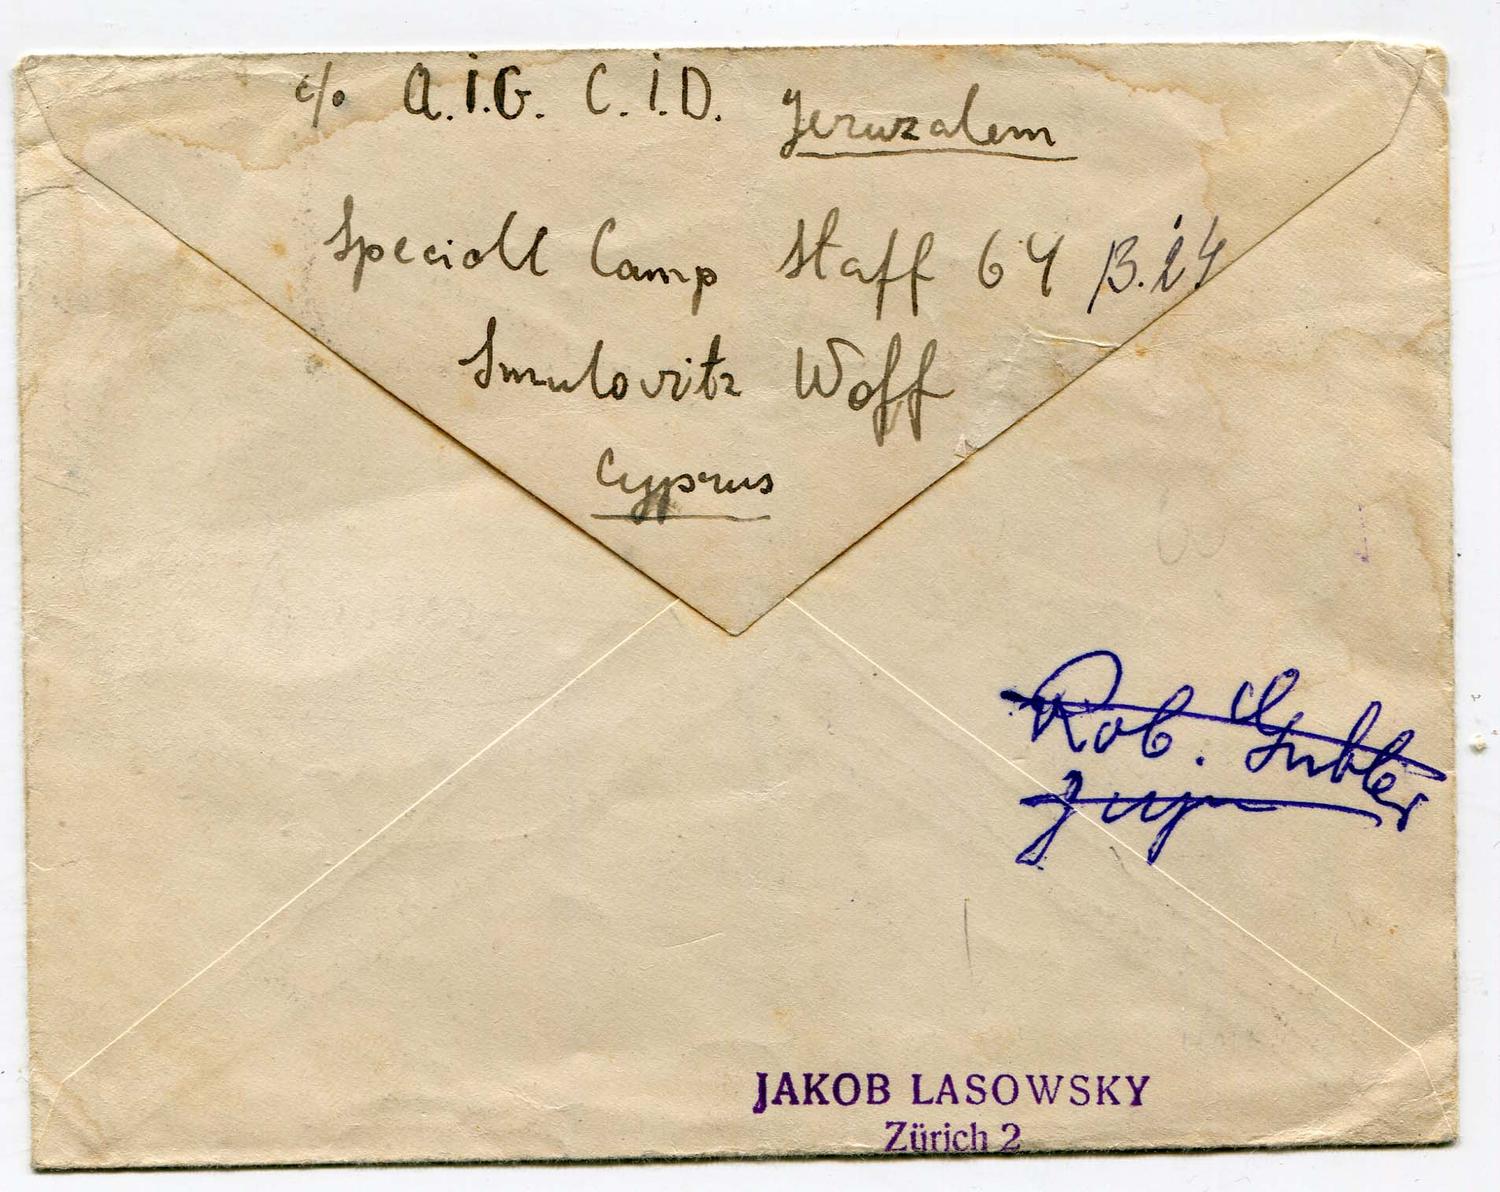 c/o A.I.G. C.I.D. Jeruzalem
Speciall Camp Staff 64 B.24
Smulovitz Woff
Cyprus
Rob.
JAKOB LASOWSKY
Zürich 2